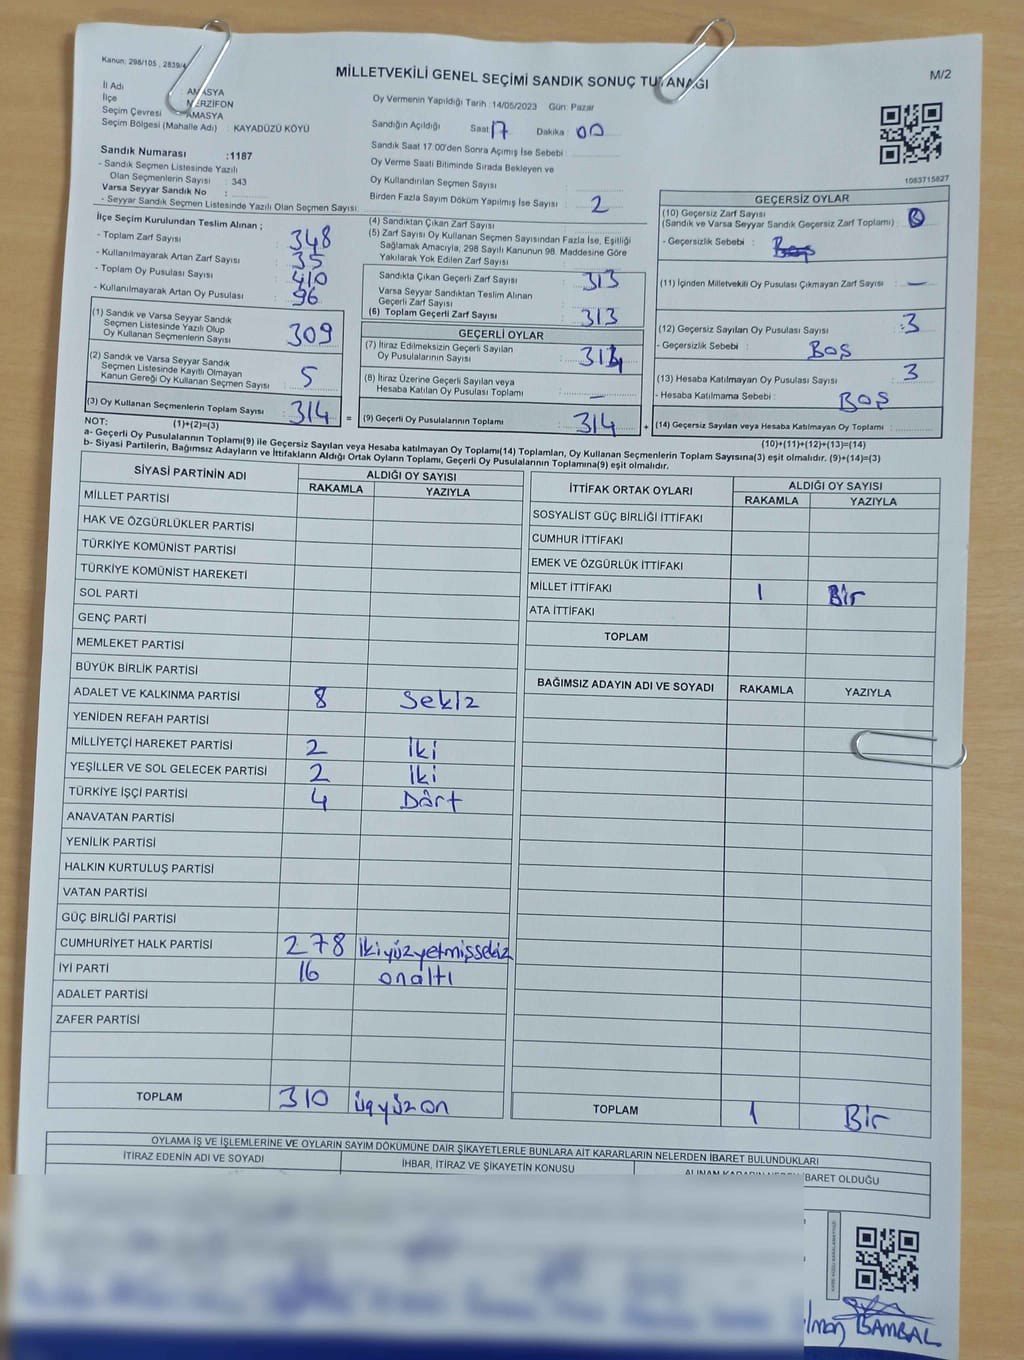 Kanun: 298/105 , 2839/4
MİLLETVEKİLİ GENEL SEÇİMİ SANDIK SONUÇ TUTANAĞI
M/2
İl Adı : AMASYA
İlçe MERZİFON
Seçim Çevresi AMASYA
Seçim Bölgesi (Mahalle Adı) : KAYADÜZÜ KÖYÜ
Sandık Numarası :1187
- Sandık Seçmen Listesinde Yazılı
Olan Seçmenlerin Sayısı : 343
Varsa Seyyar Sandık No :
- Seyyar Sandık Seçmen Listesinde Yazılı Olan Seçmen Sayısı:
Oy Vermenin Yapıldığı Tarih :14/05/2023 Gün: Pazar
Sandığın Açıldığı Saat: 17 Dakika : 00
Sandık Saat 17:00'den Sonra Açımış İse Sebebi :
Oy Verme Saati Bitiminde Sırada Bekleyen ve
Oy Kullandırılan Seçmen Sayısı :
Birden Fazla Sayım Döküm Yapılmış İse Sayısı : 2
1083715827
İlçe Seçim Kurulundan Teslim Alınan ;
- Toplam Zarf Sayısı : 348
- Kullanılmayarak Artan Zarf Sayısı : 35
- Toplam Oy Pusulası Sayısı : 410
- Kullanılmayarak Artan Oy Pusulası : 96
(1) Sandık ve Varsa Seyyar Sandık
Seçmen Listesinde Yazılı Olup
Oy Kullanan Seçmenlerin Sayısı : 309
(2) Sandık ve Varsa Seyyar Sandık
Seçmen Listesinde Kayıtlı Olmayan
Kanun Gereği Oy Kullanan Seçmen Sayısı : 5
(3) Oy Kullanan Seçmenlerin Toplam Sayısı : 314 =
(1)+(2)=(3)
(4) Sandıktan Çıkan Zarf Sayısı :
(5) Zarf Sayısı Oy Kullanan Seçmen Sayısından Fazla İse, Eşitliği
Sağlamak Amacıyla, 298 Sayılı Kanunun 98. Maddesine Göre
Yakılarak Yok Edilen Zarf Sayısı :
Sandıkta Çıkan Geçerli Zarf Sayısı : 313
Varsa Seyyar Sandıktan Teslim Alınan
Geçerli Zarf Sayısı :
(6) Toplam Geçerli Zarf Sayısı : 313
GEÇERLİ OYLAR
(7) İtiraz Edilmeksizin Geçerli Sayılan
Oy Pusulalarının Sayısı : 314
(8) İtiraz Üzerine Geçerli Sayılan veya
Hesaba Katılan Oy Pusulası Toplamı : –
(9) Geçerli Oy Pusulalarının Toplamı : 314 +
GEÇERSİZ OYLAR
(10) Geçersiz Zarf Sayısı
(Sandık ve Varsa Seyyar Sandık Geçersiz Zarf Toplamı) : 0
- Geçersizlik Sebebi : Boş
(11) İçinden Milletvekili Oy Pusulası Çıkmayan Zarf Sayısı : –
(12) Geçersiz Sayılan Oy Pusulası Sayısı : 3
- Geçersizlik Sebebi : Boş
(13) Hesaba Katılmayan Oy Pusulası Sayısı : 3
- Hesaba Katılmama Sebebi : Boş
(14) Geçersiz Sayılan veya Hesaba Katılmayan Oy Toplamı :
(10)+(11)+(12)+(13)=(14)
NOT:
a- Geçerli Oy Pusulalarının Toplamı(9) ile Geçersiz Sayılan veya Hesaba katılmayan Oy Toplamı(14) Toplamları, Oy Kullanan Seçmenlerin Toplam Sayısına(3) eşit olmalıdır. (9)+(14)=(3)
b- Siyasi Partilerin, Bağımsız Adayların ve İttifakların Aldığı Ortak Oyların Toplamı, Geçerli Oy Pusulalarının Toplamına(9) eşit olmalıdır.
SİYASİ PARTİNİN ADI ALDIĞI OY SAYISI
RAKAMLA YAZIYLA
MİLLET PARTİSİ
HAK VE ÖZGÜRLÜKLER PARTİSİ
TÜRKİYE KOMÜNİST PARTİSİ
TÜRKİYE KOMÜNİST HAREKETİ
SOL PARTİ
GENÇ PARTİ
MEMLEKET PARTİSİ
BÜYÜK BİRLİK PARTİSİ
ADALET VE KALKINMA PARTİSİ 8 Sekiz
YENİDEN REFAH PARTİSİ
MİLLİYETÇİ HAREKET PARTİSİ 2 İki
YEŞİLLER VE SOL GELECEK PARTİSİ 2 İki
TÜRKİYE İŞÇİ PARTİSİ 4 Dört
ANAVATAN PARTİSİ
YENİLİK PARTİSİ
HALKIN KURTULUŞ PARTİSİ
VATAN PARTİSİ
GÜÇ BİRLİĞİ PARTİSİ
CUMHURİYET HALK PARTİSİ 278 ikiyüzyetmişsekiz
İYİ PARTİ 16 onaltı
ADALET PARTİSİ
ZAFER PARTİSİ
TOPLAM 310 üçyüzon
İTTİFAK ORTAK OYLARI ALDIĞI OY SAYISI
RAKAMLA YAZIYLA
SOSYALİST GÜÇ BİRLİĞİ İTTİFAKI
CUMHUR İTTİFAKI
EMEK VE ÖZGÜRLÜK İTTİFAKI
MİLLET İTTİFAKI 1 Bir
ATA İTTİFAKI
TOPLAM
BAĞIMSIZ ADAYIN ADI VE SOYADI RAKAMLA YAZIYLA
TOPLAM 1 Bir
OYLAMA İŞ VE İŞLEMLERİNE VE OYLARIN SAYIM DÖKÜMÜNE DAİR ŞİKAYETLERLE BUNLARA AİT KARARLARIN NELERDEN İBARET BULUNDUKLARI
İTİRAZ EDENİN ADI VE SOYADI İHBAR, İTİRAZ VE ŞİKAYETİN KONUSU ALINAN KARARIN NEDEN İBARET OLDUĞU
BAMBAL